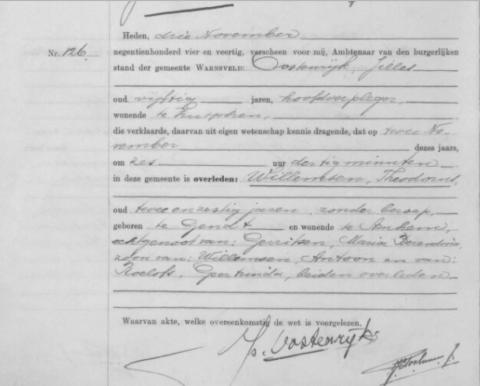 Heden, drie November
Nr. 126.
negentienhonderd vier en veertig, verscheen voor mij, Ambtenaar van den burgerlijken
stand der gemeente WARNSVELD: Oostenrijk, Jelles
oud vijftig jaren, hoofdverpleger,
wonende te Zutphen,
die verklaarde, daarvan uit eigen wetenschap kennis dragende, dat op twee No-
vember dezes jaars,
om zes uur dertig minuten
in deze gemeente is overleden: Willemsen, Theodorus,
oud twee en zestig jaren, zonder beroep,
geboren te Gendt en wonende te Arnhem,
echtgenoot van: Gerritsen, Maria Berendina,
zoon van: Willemsen, Antoon en van:
Roelofs, Geertruida, beiden overleden
Waarvan akte, welke overeenkomstig de wet is voorgelezen.
J. Oostenrijk